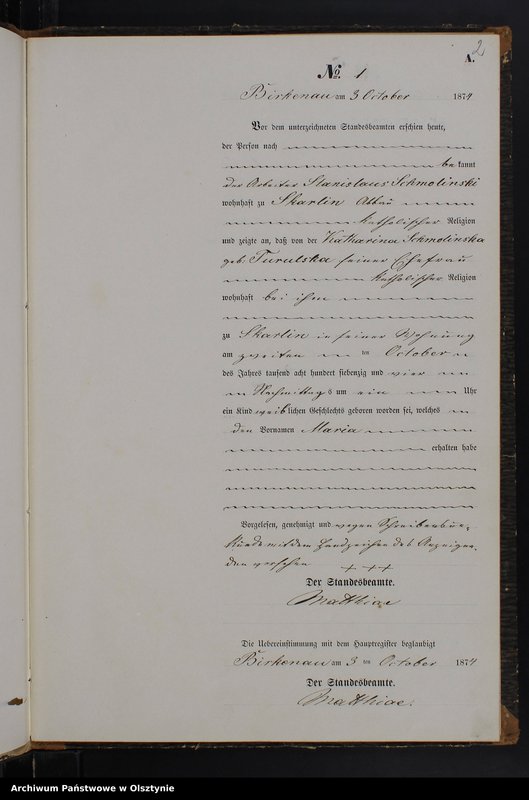 2
A.
No. 1
Birkenau am 3 October 1874
Vor dem unterzeichneten Standesbeamten erschien heute,
der Person nach
be kannt
der Arbeiter Stanislaus Schmolinski
wohnhaft zu Skarlin Abbau
katholischer Religion
und zeigte an, daß von der Katharina Schmolinska
geb. Turulska seiner Ehefrau
katholischer Religion
wohnhaft bei ihm
zu Skarlin in seiner Wohnung
am zweiten ten October
des Jahres tausend acht hundert siebenzig und vier
Nachmittag s um ein Uhr
ein Kind weib lichen Geschlechts geboren worden sei, welches
den Vornamen Maria
erhalten habe
Vorgelesen, genehmigt und wegen Schreibensun-
kunde mit dem Handzeichen des Anzeigen-
den versehen
+ + +
Der Standesbeamte.
Matthiae
Die Uebereinstimmung mit dem Hauptregister beglaubigt
Birkenau am 3 ten October 1874
Der Standesbeamte.
Matthiae.
Archiwum Państwowe w Olsztynie